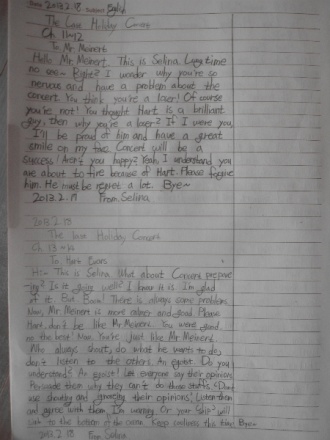 2013.2.17 Subject English
The Last Holiday Concert
Ch 11~12
To. Mr Meinert
Hello Mr. Meinert. This is Selina. Long time
no see~ Right? I wonder why you're so
nervous and have a problem about the
concert. You think you're a loser! Of course
you're not! You thought Hart is a brilliant
guy, then why you're a loser? If I were you,
I'll be proud of him and have a great
smile on my face. Concert will be a
success! Aren't you happy? Yeah, I understand you
are about to fire because of Hart. Please forgive
him. He must be regret a lot. Bye~
2013.2.17 From. Selina
2013.2.18
The Last Holiday Concert
Ch. 13~14
To. Hart Evans
Hi~ This is Selina. What about Concert prepare
-ing? Is it going well? I know it is. I'm glad
of it. But Boom! There is always some problem.
Now, Mr Meinert is more calmer and good. Please
Hart, don't be like Mr Meinert. You were good
at the first. Now, You're just like Mr Meinert
Who always shout, do what he wants to do,
don't listen to the others. An egotist. Do you
understand? An egoist! Let everyone say their opinions.
Persuade them why they can't do those stuffs. Don't
use shouting and ignoring their opinions! Listen them
and agree with them. I'm worrying. Or your "ship" will
sink to the bottom of the ocean. Keep concerns this thing. Bye~
2013.2.18 From. Selina